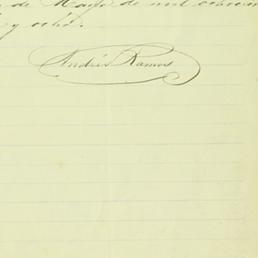 de Mayo de mil ochocien
y ocho.
Andrés Ramos